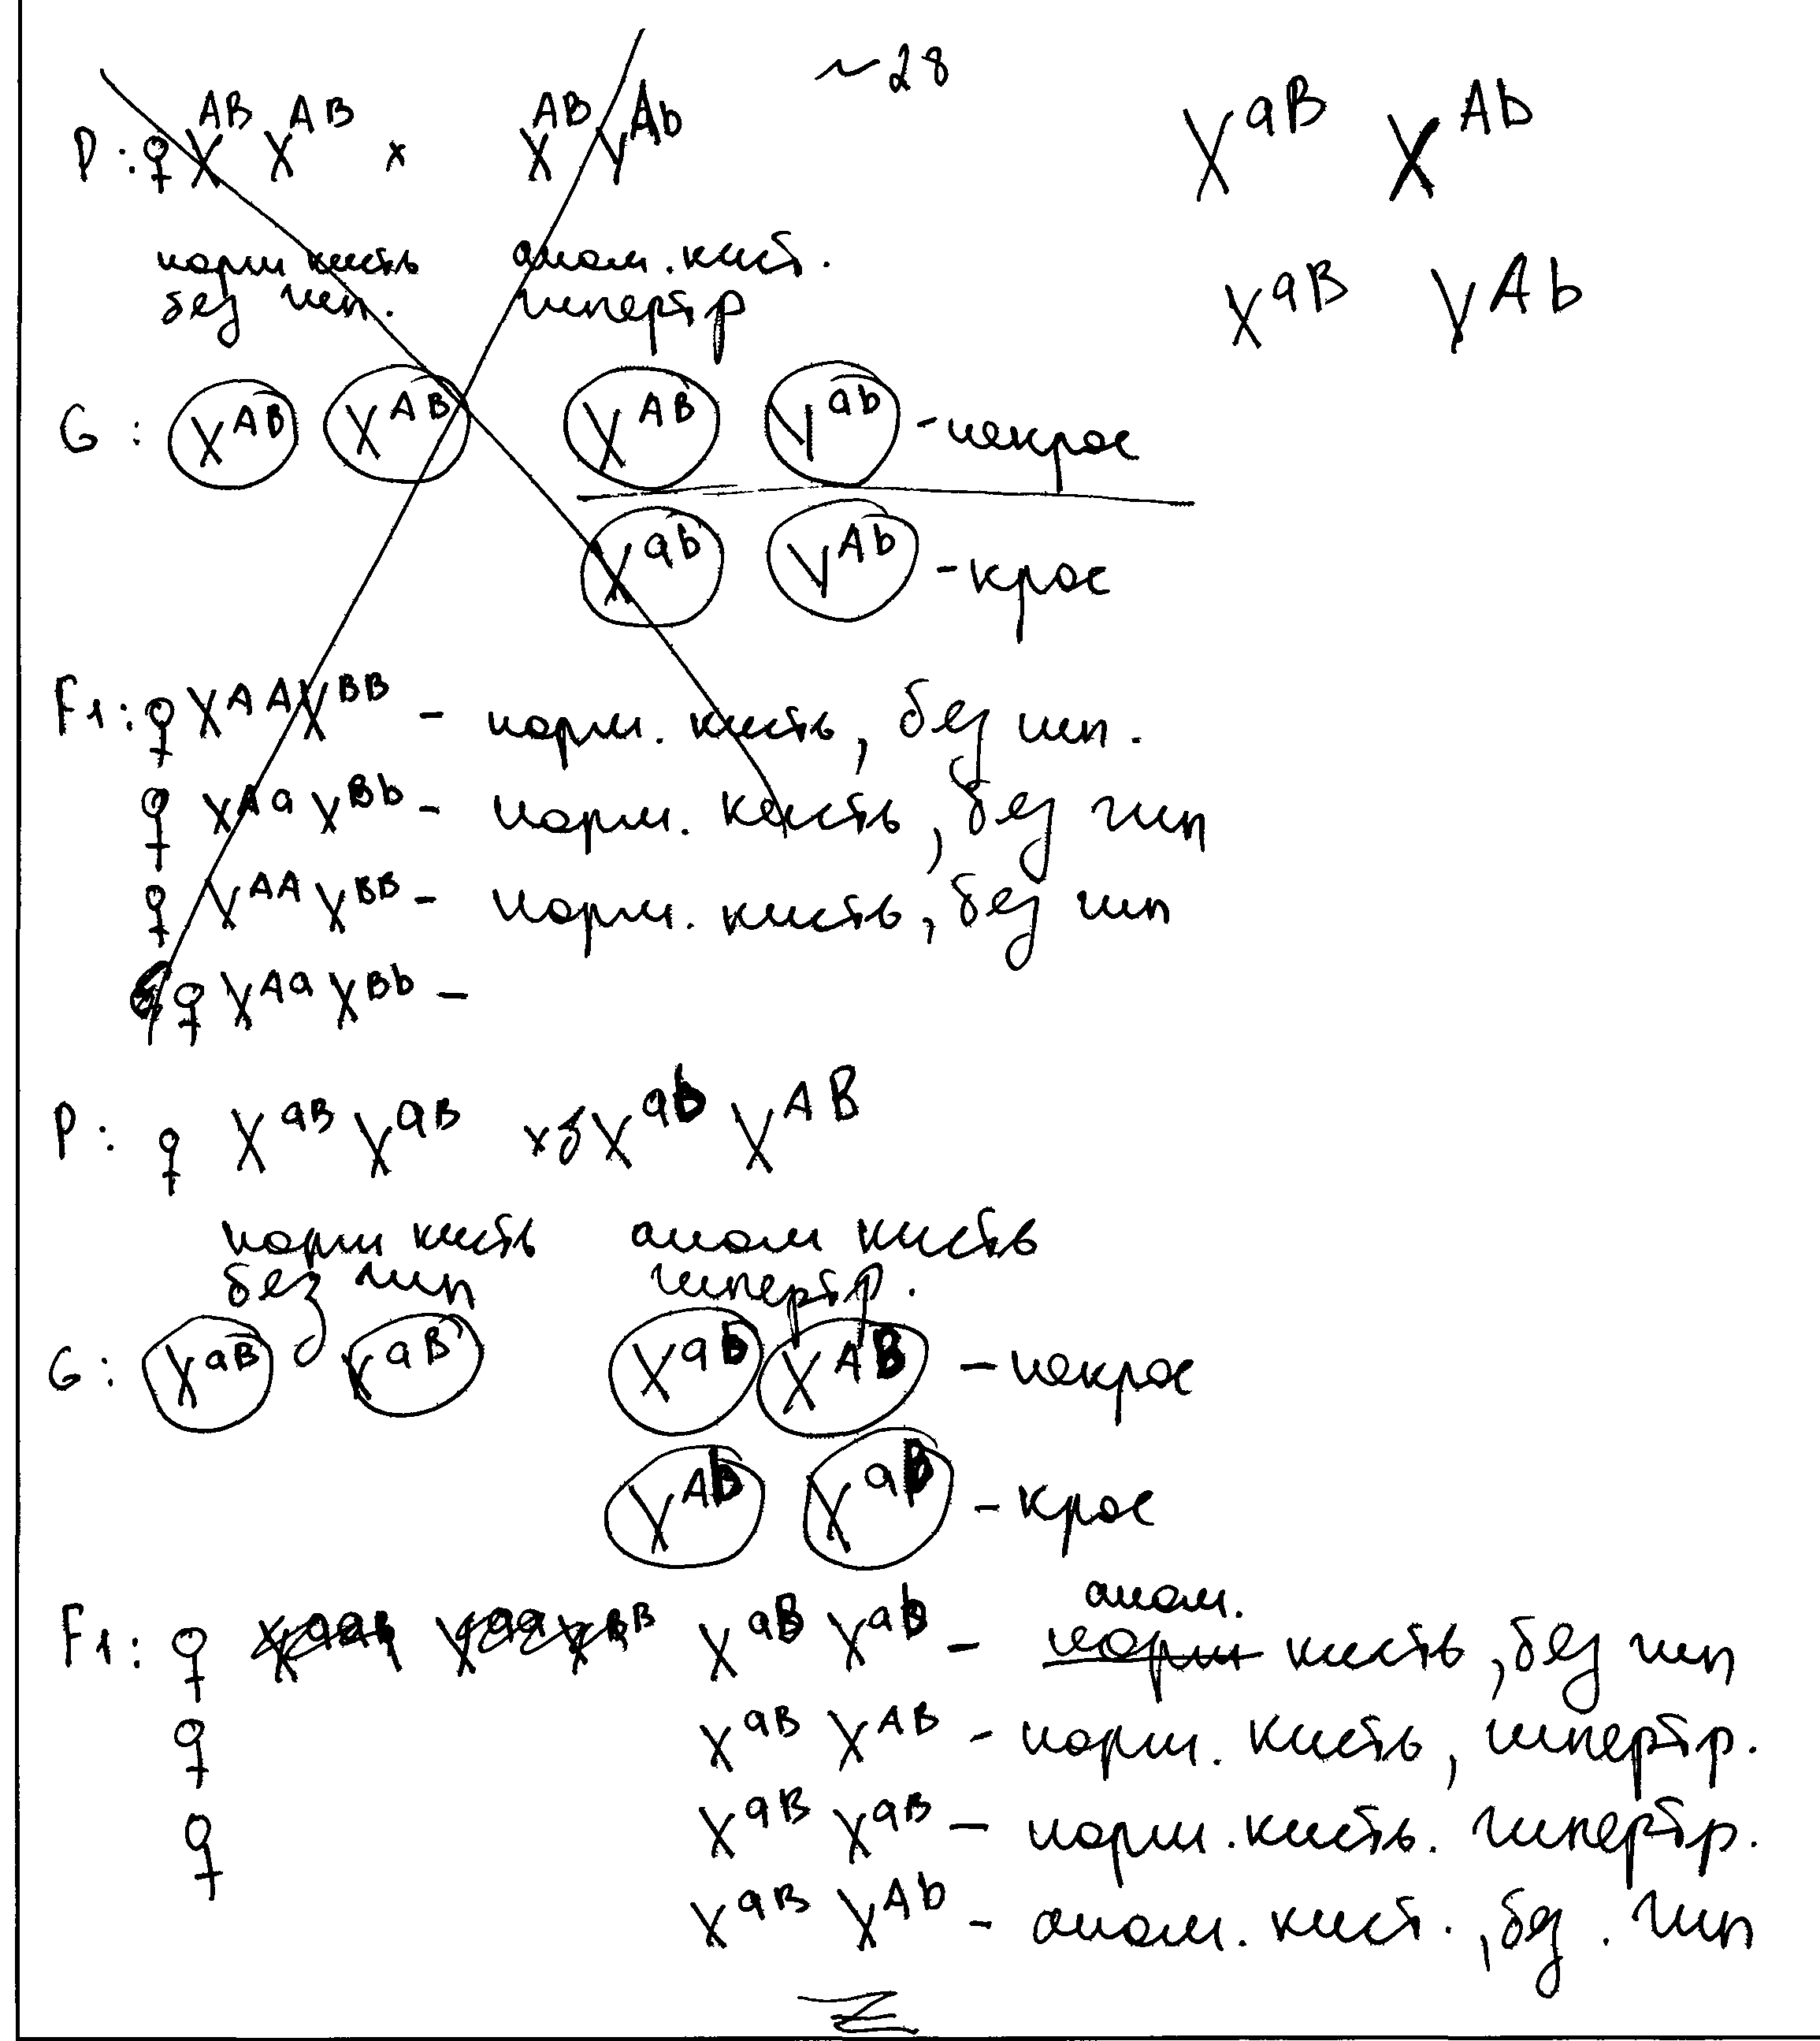 ~28
P: ♀ X^AB X^AB x X^AB Y^Ab
X^aB X^Ab
норм кисть аном. кист.
без гип. гипертр
X^aB Y^Ab
G: X^AB X^AB X^AB Y^ab - некрос
X^ab Y^Ab - крос
F1: ♀ X^AA X^BB - норм. кисть, без гип.
♀ X^Aa X^Bb - норм. кисть, без гип
♀ X^AA X^BB - норм. кисть, без гип
♀ X^Aa X^Bb -
P: ♀ X^aB X^aB x ♂ X^ab Y^AB
норм кисть аном кисть
без гип гипертр.
G: X^aB X^aB X^ab X^AB - некрос
Y^Ab Y^aB - крос
аном.
F1: ♀ X^aB X^ab - норм кисть, без гип
♀ X^aB X^AB - норм. кисть, гипертр.
♀ X^aB X^aB - норм. кисть. гипертр.
X^aB X^Ab - аном. кист., без. гип